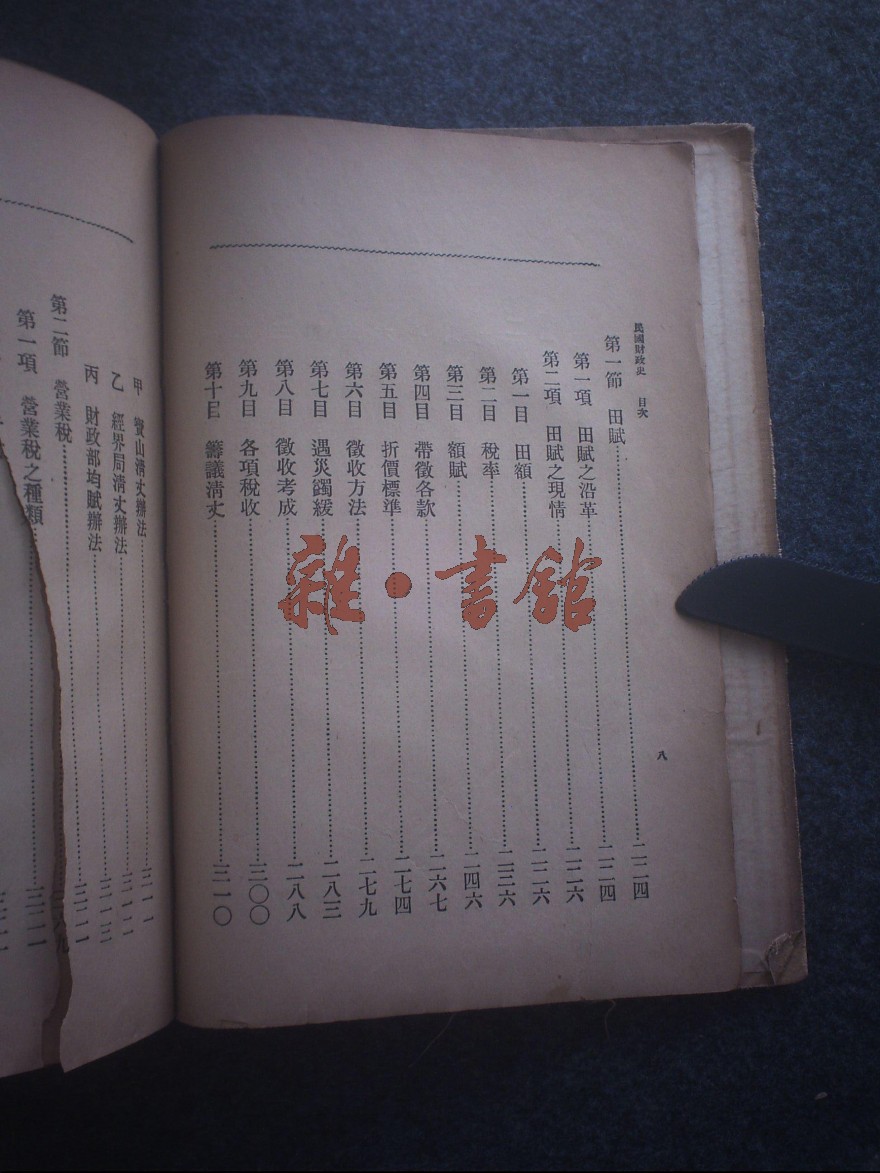 民國財政史 目次
八
第一節 田賦……二二四
第一項 田賦之沿革……二二四
第二項 田賦之現情……二二六
第一目 田額……二二六
第二目 稅率……二三六
第三目 額賦……二四六
第四目 帶徵各款……二六七
第五目 折價標準……二七四
第六目 徵收方法……二七九
第七目 遇災蠲緩……二八三
第八目 徵收考成……二八八
第九目 各項稅收……三〇〇
第十目 籌議清丈……三一〇
甲 寶山清丈辦法……三一一
乙 經界局清丈辦法……三一三
丙 財政部均賦辦法……
第二節 營業稅……
第一項 營業稅之種類……
雜·書館